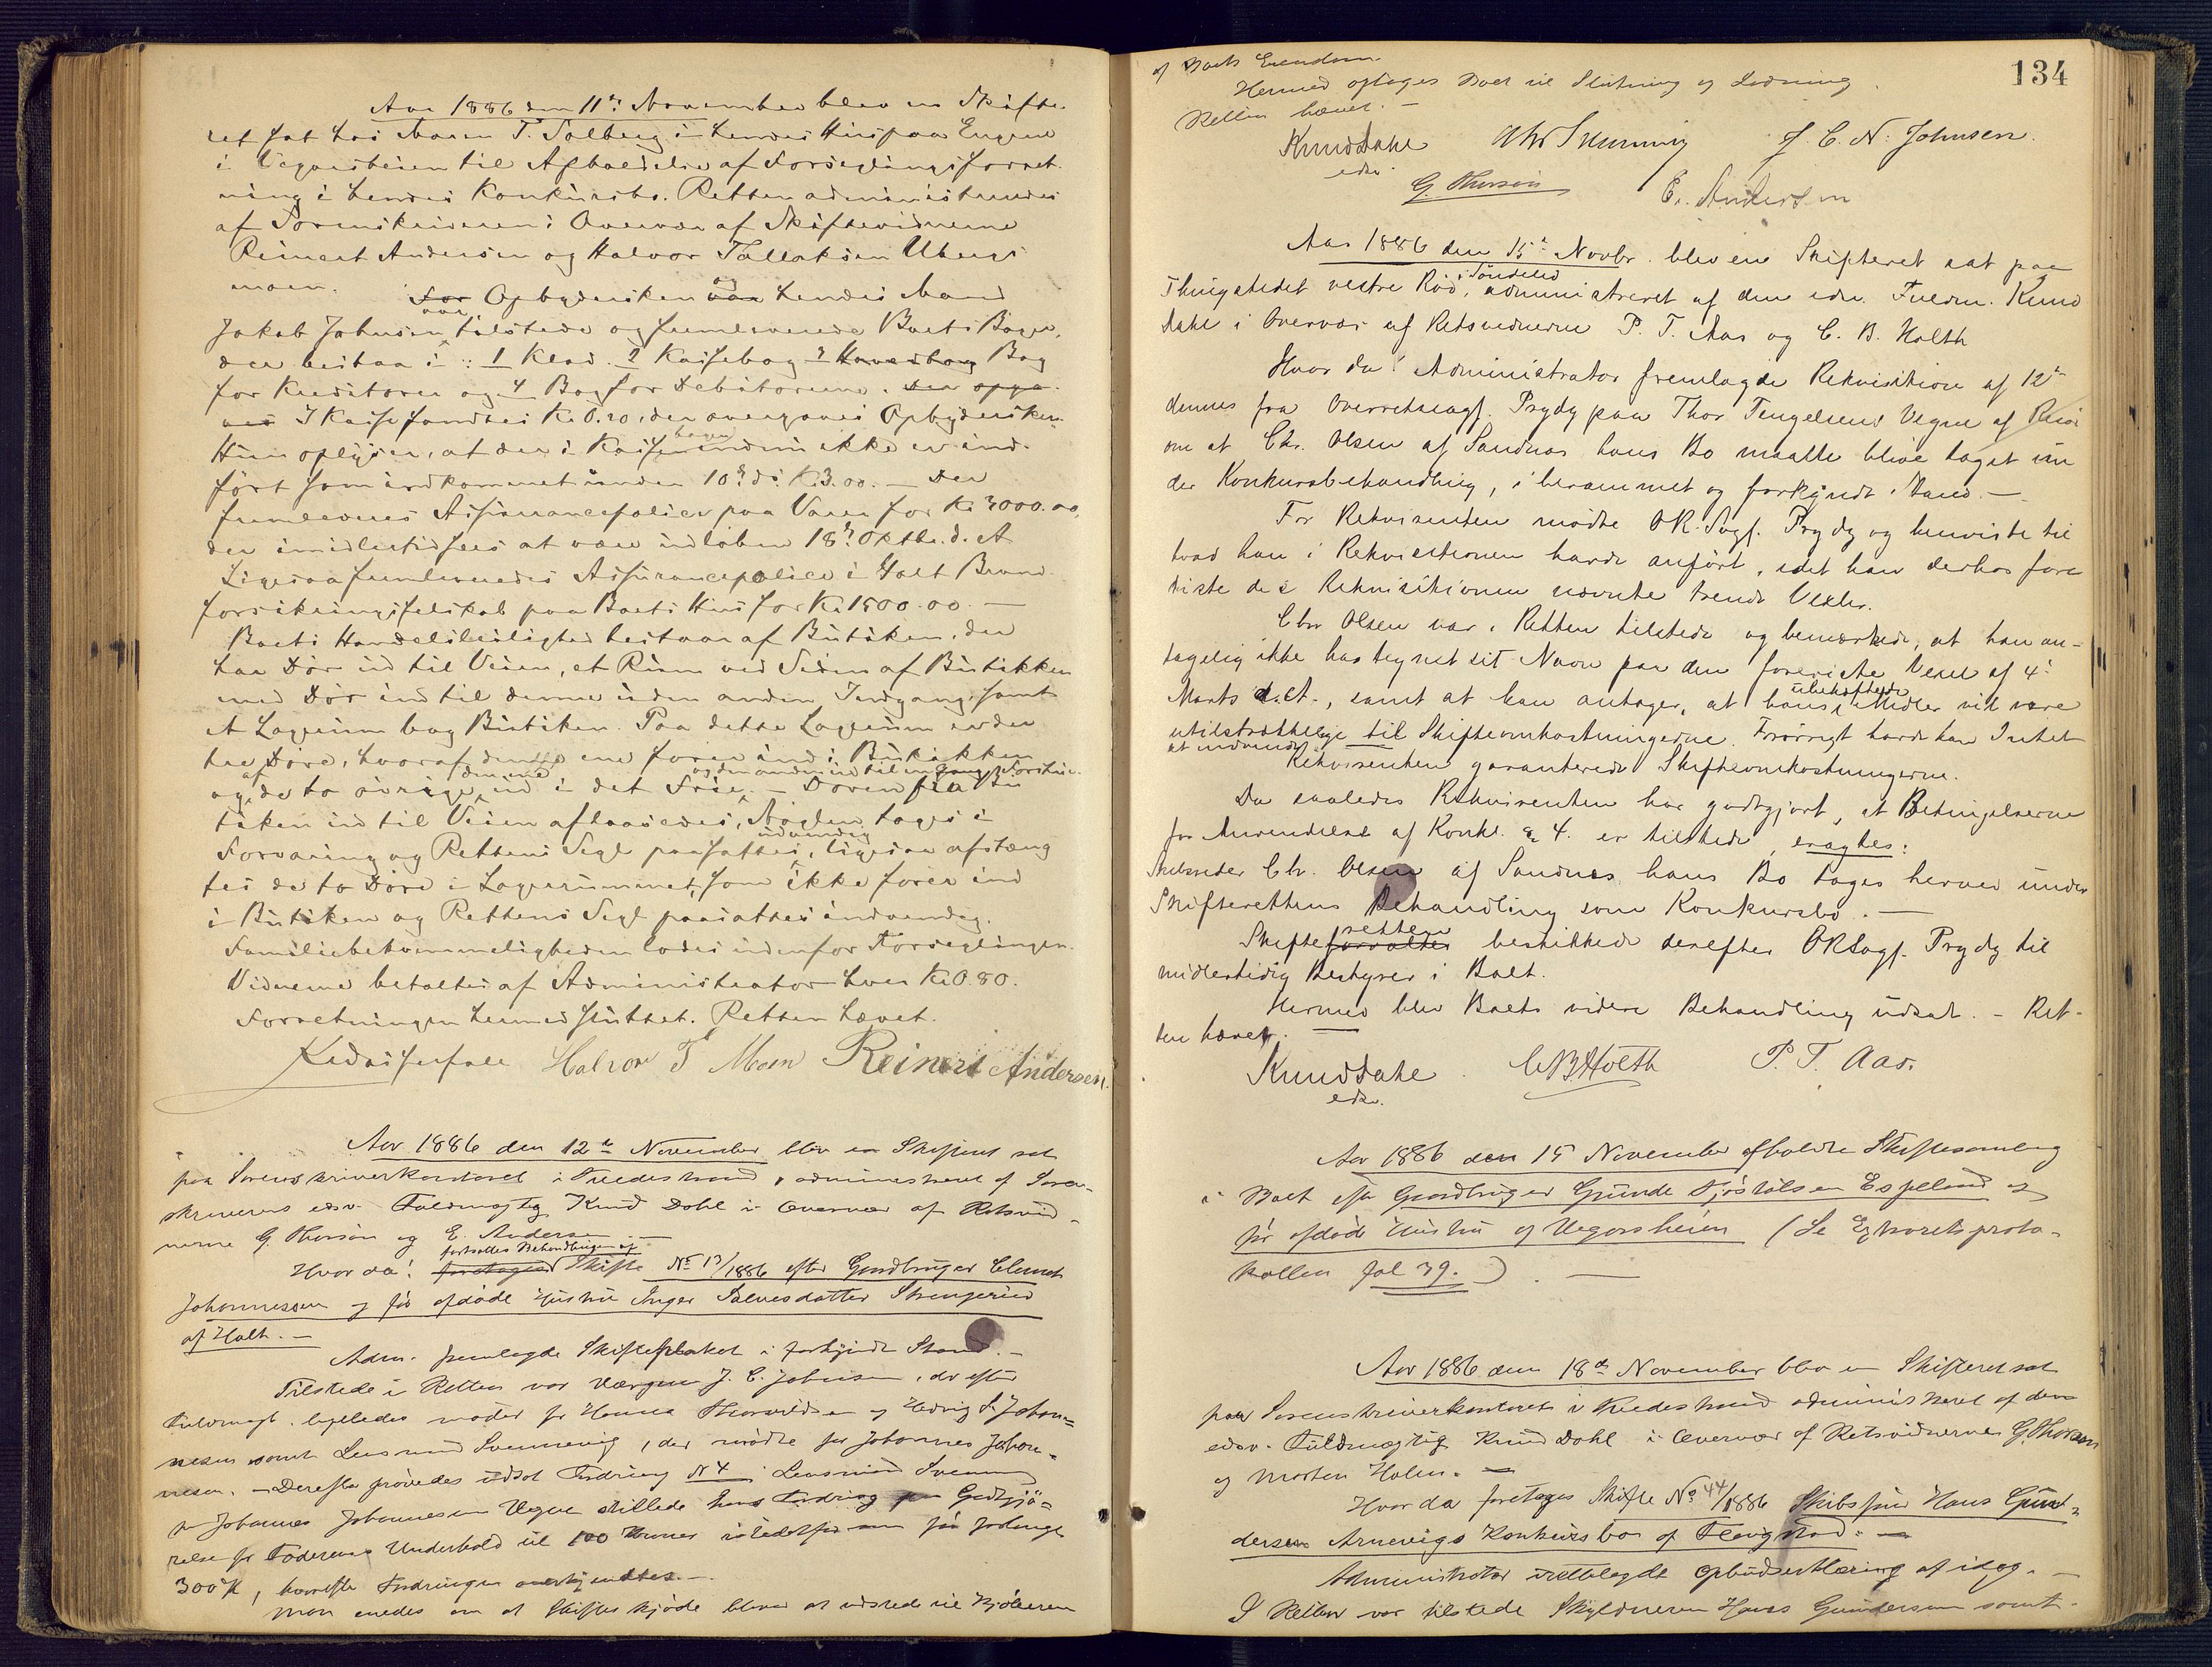 Aar 1886 den 11te November blev en Skifte-
ret sat hos Maren T. Solberg i hendes Hus paa Engene
i Vegarsheien til Afholdelse af Forseglingsforret-
ning i hendes Konkursbo. Retten administreredes
af Sorenskriveren i Overvær af Skiftevidnerne
Reinert Andersen og Halvor Tallaksen Ubergs-
moen.
For Opbydersken og hendes Mand
Jakob Johnsen var tilstede og fremleverede Boets Bøger,
der bestaa i: 1 Klad. 2 Kassebog 3 Hovedbog Bog
for Kreditorer og 4 Bog for Debitorerne. Der opga-
ves I Kasse fandtes Kr. 0.20, der overgaves Opbydersken.
Hun oplyser, at der i Kassebogen endnu ikke er ind-
ført som indkommet under 10de ds. Kr. 3.00. — Der
fremleveres Assurancepolice paa Varer for Kr. 3000.00,
der imidlertid sees at være udløben 18de Oktbr. d. A
Ligesaa fremleveredes Assurancepolice i Holt Brand-
forsikringsselskab paa Boets Hus for Kr. 1500.00. —
Boets Handelsleilighed bestaar af Butiken, der
har Dør ud til Veien, et Rum ved Siden af Butikken
med Dør ind til denne uden anden Indgang, samt
et Lagerum bag Butiken. Paa dette Lagerum er der
tre Døre, hvoraf den ene fører ind i Butikken
og af de to øvrige den ene ud i det Frie, og den anden ind til — Døren fra Bu
tiken ud til Veien aflaasedes, Nøglen toges i
Forvaring og Rettens Segl paasattes udvendig, ligesaa afstæng
tes de to Døre i Lagerummet, som ikke fører ind
i Butiken og Rettens Segl paasattes indvendig.
Familiebekvemmeligheden lodes udenfor Forseglingen.
Vidnerne betaltes af Administrator hver Kr. 0.80.
Forretningen hermed sluttet. Retten hævet.
Halvor T Moen Reinert Andersen.
Aar 1886 den 12te November blev en Skifteret sat
paa Sorenskriverkontoret i Tvedestrand, administreret af Soren-
skriverens edsv. Fuldmægtig Knud Dahl i Overvær af Retsvid-
nerne G. Thorsøn og E. Andersen. —
Hvor da! foretages fortsattes Behandlingen af Skifte No 13/1886 efter Gaardbruger Clemet
Johannessen og før afdøde Hustru Inger Salvesdatter Strengereid
af Holt. —
Adm. fremlagde Skifteplakat i forkyndt Stand. —
Tilstede i Retten var Værgen J. C. Johnsen, der efter
Fuldmagt. ligeledes møder for Hanna Thorvildsen og Hedvig S. Johan-
nesen samt Lensmand Svennevig, der mødte for Johannes Johan-
nesen. — Derefter prøvedes udsat Fordring No 4. Lensmand Svennevig
paa Johannes Johannesens Vegne stillede hans Fordring paa Godtgjø-
relse for Faderens Underhold til 100 Kroner istedetfor som før forlangt
300 Kr, hvorefter Fordringen anerkjendtes. —
Man enedes om at Skifteskjøde bliver at udstede til Kjøberen
134
af Boets Eiendom.
Hermed optages Boet til Slutning og Lodning.
Retten hævet. —
Knud Dahl
edsv.
J. C. N. Johnsen.
G. Thorsøn
E. Andersen
Aar 1886 den 15de Novbr. blev en Skifteret sat paa
Thingstedet vestre Rød, i Søndeled administreret af den edsv. Fuldm. Knud
Dahl i Overvær af Retsvidnerne P. T. Aas og C. B. Holth
Hvor da! Administrator fremlagde Rekvisition af 12te
dennes fra Overretssagf. Prydz paa Thor Tengelsens Vegne af Risør
om at Chr. Olsen af Sandnes hans Bo maatte blive taget un
der Konkursbehandling, i berammet og forkyndt Stand. —
For Rekvirenten mødte OR. Sagf. Prydz og henviste til
hvad han i Rekvisitionen havde anført, idet han derhos fore
viste de i Rekvisitionen nævnte trende Vexler.
Chr Olsen var i Retten tilstede og bemærkede, at han an-
tagelig ikke har tegnet sit Navn paa den foreviste Vexel af 4de
Marts d. A., samt at han antager, at hans ubehæftede Midler vil være
utilstrækkelige til Skifteomkostningerne. Forøvrigt havde han Intet
at indvende Rekvirenten garanterede Skifteomkostningerne.
Da saaledes Rekvirenten har godtgjort, at Betingelserne
for Anvendelse af Konkl. § 4. er tilstede, eragtes:
Skibsreder Chr. Olsen af Sandnes hans Bo tages herved under
Skifterettens Behandling som Konkursbo. —
Skifteforvalter retten beskikkede derefter ORSagf. Prydz til
midlertidig Bestyrer i Boet.
Hermed blev Boets videre Behandling udsat. — Ret-
ten hævet.
Knud Dahl
edsv.
C B Holth P. T. Aas.
Aar 1886 den 15 November afholdtes Skiftesamling
i Boet efter Gaardbruger Gunde Kjøstolsen Espeland og
før afdøde Hustru af Vegarsheien (Se Extraretsproto-
kollen fol 39.) —
Aar 1886 den 18de November blev en Skifteret sat
paa Sorenskriverkontoret i Tvedestrand administreret af den
edsv. Fuldmægtig Knud Dahl i Overvær af Retsvidnerne G. Thorsøn
og Morten Holm. —
Hvor da foretages Skifte No 44/1886 Skibsfører Hans Gun-
dersen Arnevigs Konkursbo af Flosta. —
Administrator irettelagde Opbudserklæring af idag. —
I Retten var tilstede Skyldneren Hans Gundersen samt